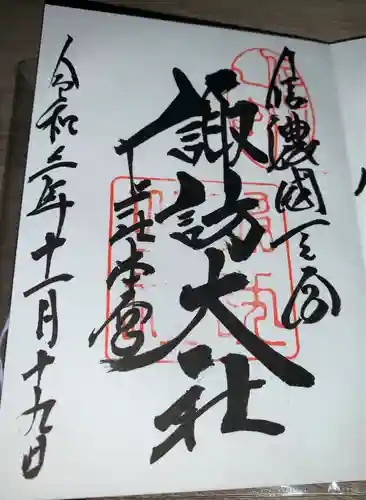 信濃國一之宮
諏訪大社
下社本宮
令和三年十一月十九日